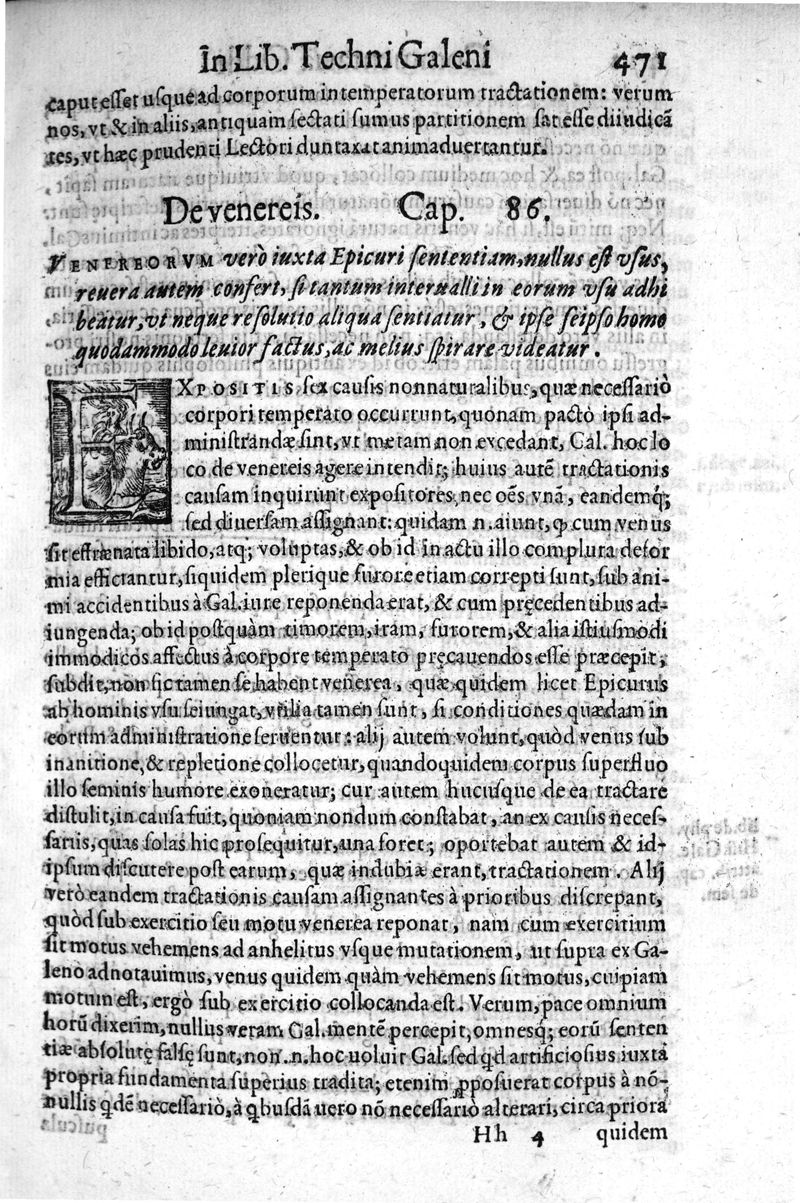 In Lib. Techni Galeni 471
caput esset usque ad corporum intemperatorum tractationem: verum
nos, vt & in aliis, antiquam sectati sumus partitionem sat esse diiudicā
tes, vt hæc prudenti Lectori duntaxat animaduertantur.
De venereis. Cap. 86.
VENEREORVM verò iuxta Epicuri sententiam, nullus est vsus,
reuera autem confert, si tantum interualli in eorum vsu adhi
beatur, vt neque resolutio aliqua sentiatur, & ipse seipso homo
quodammodo leuior factus, ac melius spirare videatur.
EXPOSITIS sex causis nonnaturalibus, quæ necessariò
corpori temperato occurrunt, quonam pactò ipsi ad-
ministrandæ sint, vt metam non excedant, Gal. hoc lo
co de venereis agere intendit; huius autē tractationis
causam inquirunt expositores, nec oēs vnā, eandemq́;
sed diuersam assignant: quidam .n. aiunt, ꝙ cum venus
sit effrænata libido, atq; voluptas, & ob id in actu illo complura defor
mia efficiantur, siquidem plerique furore etiam correpti sunt, sub ani-
mi accidentibus à Gal. iure reponenda erat, & cum pręcedentibus ad-
iungenda; ob id postquàm timorem, iram, furorem, & alia istiusmodi
immodicos affectus à corpore temperato pręcauendos esse præcepit,
subdit, non sic tamen se habent venerea, quæ quidem licet Epicurus
ab hominis vsu seiungat, vtilia tamen sunt, si conditiones quædam in
eorum administratione seruentur: alij autem volunt, quòd venus sub
inanitione, & repletione collocetur, quandoquidem corpus superfluo
illo seminis humore exoneratur; cur autem hucusque de ea tractare
distulit, in causa fuit, quoniam nondum constabat, an ex causis neces-
sariis, quas solas hic prosequitur, una foret; oportebat autem & id-
ipsum discutere post earum, quæ indubiæ erant, tractationem. Alij
verò eandem tractationis causam assignantes à prioribus discrepant,
quòd sub exercitio seu motu venerea reponat, nam cum exercitium
sit motus vehemens ad anhelitus vsque mutationem, ut supra ex Ga-
leno adnotauimus, venus quidem quàm vehemens sit motus, cuipiam
motum est, ergò sub exercitio collocanda est. Verum, pace omnium
horū dixerim, nullus veram Gal. mentē percepit, omnesq; eorū senten
tiæ absolutę falsę sunt, non .n. hoc uoluit Gal. sed qd artificiosius iuxta
propria fundamenta superius tradita; etenim ꝓposuerat corpus à nō-
nullis qdē necessariò, à qbusdā uero nō necessariò alterari, circa priora
Hh 4 quidem